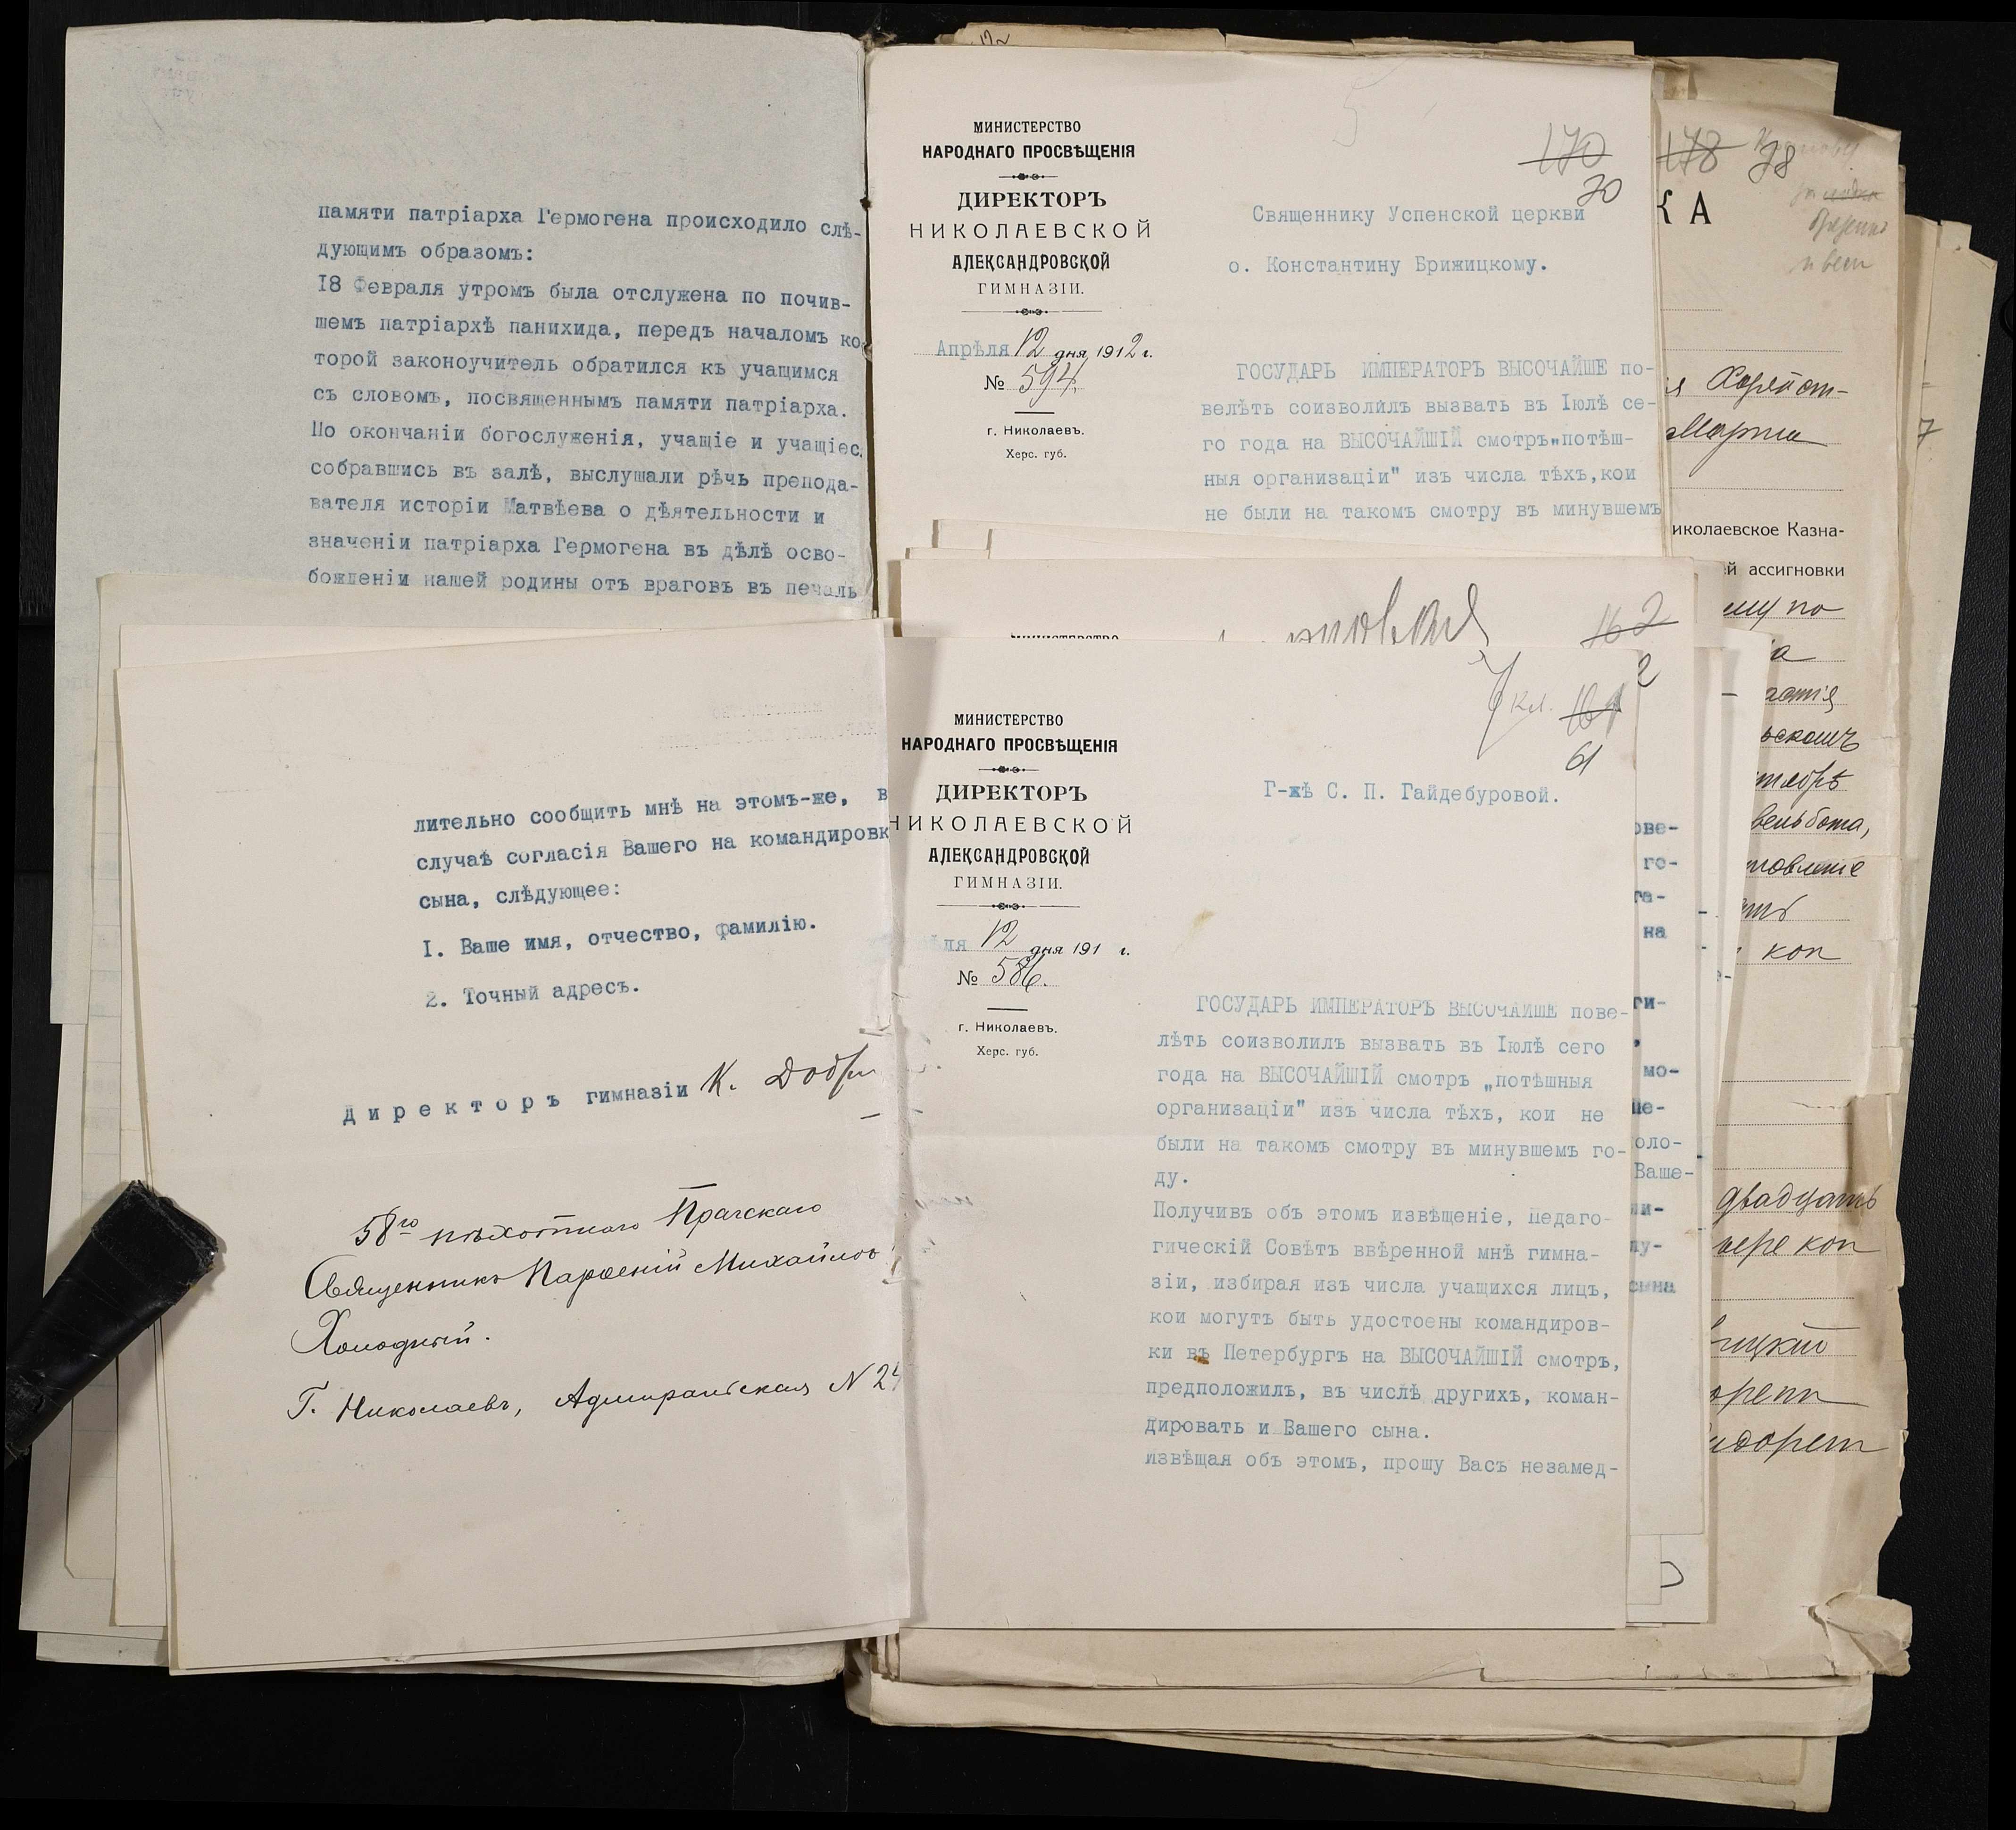 памяти патріарха Гермогена происходило слѣ-
дующимъ образомъ:
18 Февраля утромъ была отслужена по почив-
шемъ патріархѣ панихида, передъ началомъ ко
торой законоучитель обратился къ учащимся
съ словомъ, посвященнымъ памяти патріарха.
По окончаніи богослуженія, учащіе и учащіес
собравшись въ залѣ, выслушали рѣчь препода-
вателя исторіи Матвѣева о дѣятельности и
значеніи патріарха Гермогена въ дѣлѣ осво-
божденіи нашей родины отъ враговъ въ печаль
МИНИСТЕРСТВО
НАРОДНАГО ПРОСВѢЩЕНІЯ
ДИРЕКТОРЪ
НИКОЛАЕВСКОЙ
АЛЕКСАНДРОВСКОЙ
ГИМНАЗІИ.
Апрѣля 12 дня 1912 г.
№ 594
г. Николаевъ.
Херс. губ.
5
170
70
Священнику Успенской церкви
о. Константину Брижицкому.
ГОСУДАРЬ ИМПЕРАТОРЪ ВЫСОЧАЙШЕ по-
велѣть соизволилъ вызвать въ Іюлѣ се-
го года на ВЫСОЧАЙШІЙ смотръ „потѣш-
ныя организаціи" изъ числа тѣхъ, кои
не были на такомъ смотру въ минувшемъ
178 78
КА
Марта
иколаевское Казна-
ей ассигновки
ему по
а
вельбота,
коп
двадцать
коп
7
162
2
МИНИСТЕРСТВО
лительно сообщить мнѣ на этомъ-же, в
случаѣ согласія Вашего на командировк
сына, слѣдующее:
I. Ваше имя, отчество, фамилію.
2. Точный адресъ.
Директоръ гимназіи К. Добр
58го пѣхотнаго Прагскаго
Священникъ Парѳеній Михайлов
Холодный.
Г. Николаевъ, Адмиральская N 24
МИНИСТЕРСТВО
НАРОДНАГО ПРОСВѢЩЕНІЯ
ДИРЕКТОРЪ
НИКОЛАЕВСКОЙ
АЛЕКСАНДРОВСКОЙ
ГИМНАЗІИ.
ѣля 12 дня 191 г.
№ 586.
г. Николаевъ.
Херс. губ.
7 кл. 161
61
Г-жѣ С. П. Гайдебуровой.
ГОСУДАРЬ ИМПЕРАТОРЪ ВЫСОЧАЙШЕ пове-
лѣть соизволилъ вызвать въ Іюлѣ сего
года на ВЫСОЧАЙШІЙ смотръ „потѣшныя
организаціи" изъ числа тѣхъ, кои не
были на такомъ смотру въ минувшемъ го-
ду.
Получивъ объ этомъ извѣщеніе, Педаго-
гическій Совѣтъ ввѣренной мнѣ гимна-
зіи, избирая изъ числа учащихся лицъ,
кои могутъ быть удостоены командиров-
ки въ Петербургъ на ВЫСОЧАЙШІЙ смотръ,
предположилъ, въ числѣ другихъ, коман-
дировать и Вашего сына.
Извѣщая объ этомъ, прошу Васъ незамед-
ове-
го-
га-
на
ги-
мо-
ше-
оло-
Ваше-
ии-
лу-
сына